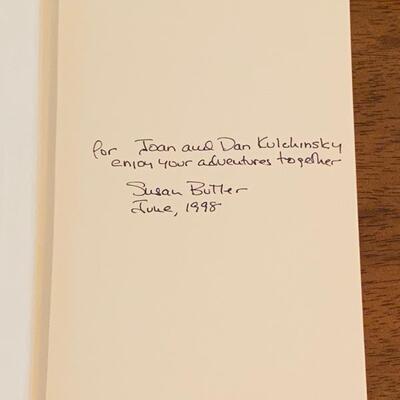 for Joan and Dan Kulchinsky
enjoy your adventures together
Susan Butler
June, 1998